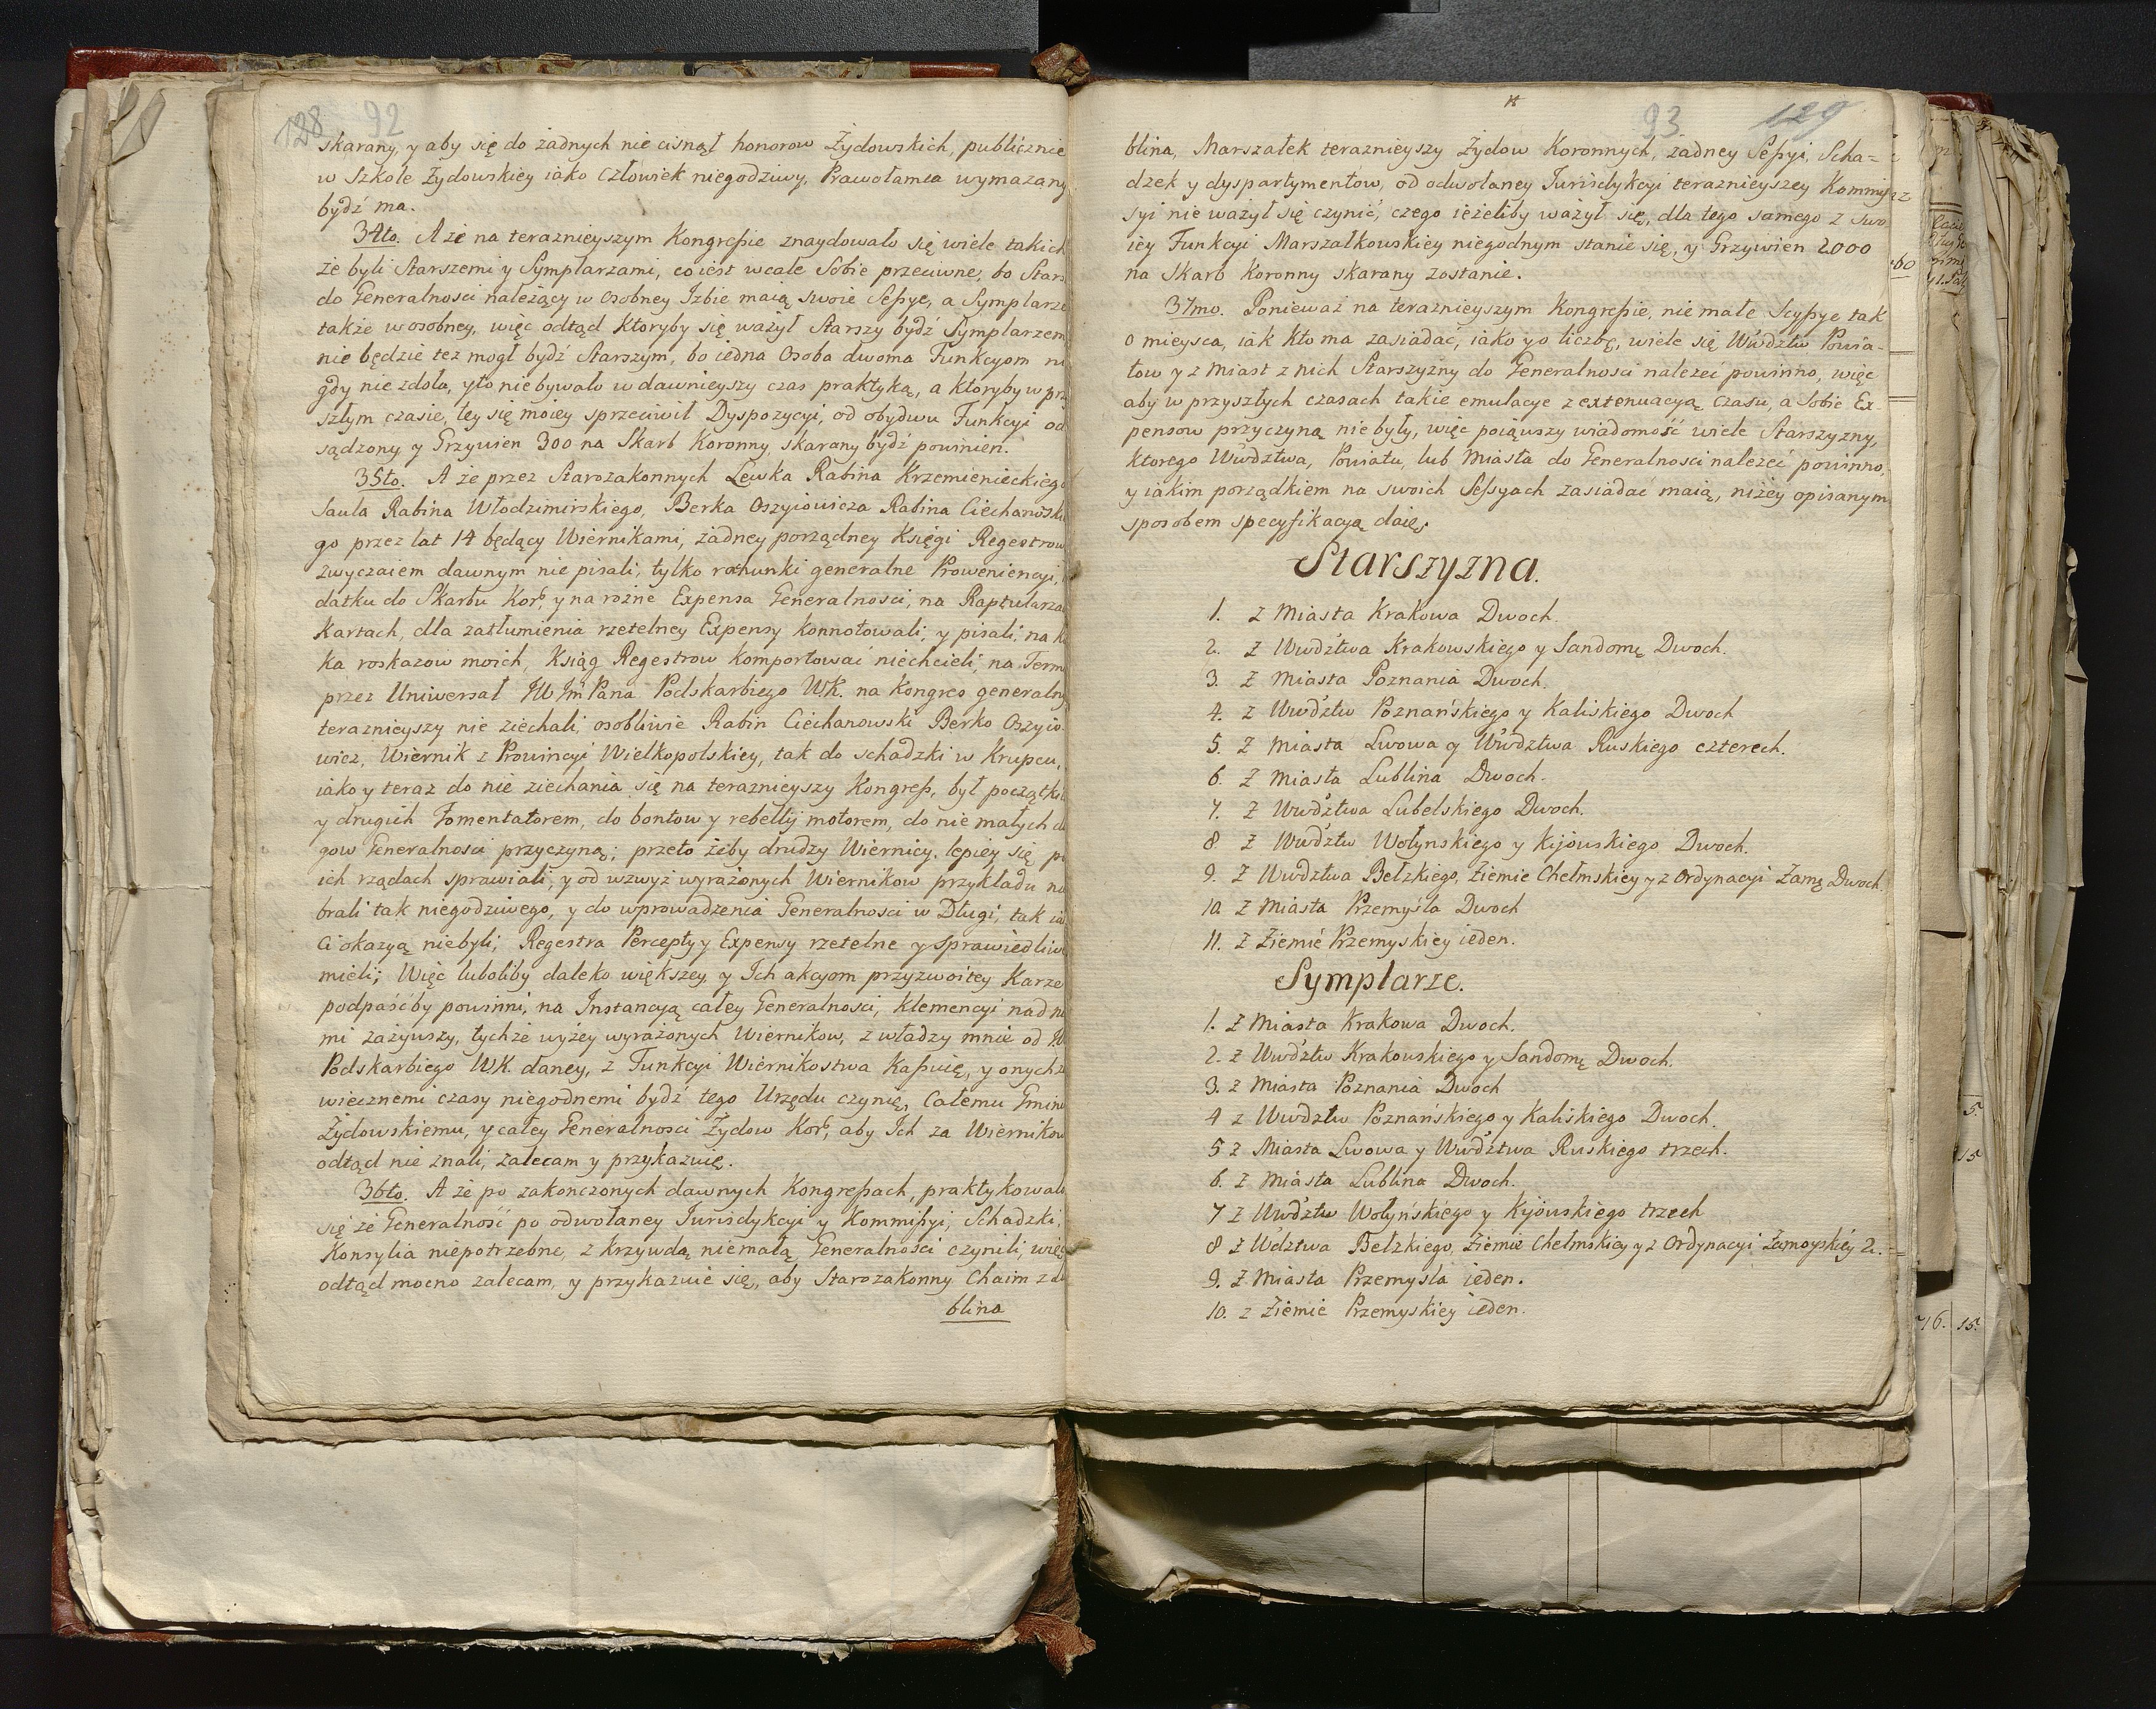 128 92
skarany, y aby się do żadnych nie cisnął honorow Żydowskich, publicznie
w Szkole Żydowskiey iako Człowiek niegodziwy, Prawołamca wymazany
bydź ma.
34to. A że na teraznieyszym Kongreſsie znaydowało się wiele takich
że byli Starszemi y Symplarzami, co iest wcale Sobie przeciwne, bo Stars
do Generalnosci należący w osobney Izbie maią swoie Seſsye, a Symplarze
także w osobney, więc odtąd ktoryby się ważył Starszy bydź Symplarzem
nie będzie tez mogł bydź Starszym, bo iedna Osoba dwoma Funkcyom ni
gdy nie zdoła, y to nie bywało w dawnieyszy czas praktyką, a ktoryby w prz
szłym czasie, tey się moiey sprzeciwił Dyspozycyi, od obydwu Funkcyi od
sądzony y Grzywien 300 na Skarb Koronny skarany bydź powinien.
35to. A że przez Starozakonnych Lewka Rabina Krzemienieckiego
Saula Rabina Włodzimirskiego, Berka Oszyiowicza Rabina Ciechanowski
go przez lat 14 będący Wiernikami, żadney porządney Księgi Regestrow
zwyczaiem dawnym nie pisali, tylko rachunki generalne Proweniencyi,
datku do Skarbu Kor: y na rozne Expensa Generalnosci, na Raptularza
Kartach, dla zatłumienia rzetelney Expensy konnotowali, y pisali, na k
ka roskazow moich, Ksiąg Regestrow komportować niechcieli, na Term
przez Uniwersał JW Jm Pana Podskarbiego WK. na Kongres generalny
teraznieyszy nie ziechali, osobliwie Rabin Ciechanowski Berko Oszyio
wicz, Wiernik z Prowincyi Wielkopolskiey, tak do schadzki w Krupcu,
iako y teraz do nie ziechania się na teraznieyszy Kongreſs, był początki
y drugich Fomentatorem, do bontow y rebellij motorem, do nie małych dł
gow Generalnosci przyczyną; przeto żeby drudzy Wiernicy, lepiey się p
ich rządach sprawiali, y od wzwyż wyrażonych Wiernikow przykładu ni
brali tak niegodziwego, y do wprowadzenia Generalnosci w Długi, tak ia
ci okazyą niebyli, Regestra Percepty y Expensy rzetelne y sprawiedliwe
mieli; Więc luboliby daleko większey, y Ich akcyom przyzwoitey Karze
podpaśćby powinni, na Instancyą całey Generalnosci, klemencyi nad ni
mi zażywszy, tychże wyżey wyrażonych Wiernikow, z władzy mnie od JW
Podskarbiego WK. daney, z Funkcyi Wiernikostwa kaſsuię, y onychż
wiecznemi czasy niegodnemi bydź tego Urzędu czynię, Całemu Gmino
Żydowskiemu, y całey Generalnosci Żydow Kor: aby Ich za Wiernikow
odtąd nie znali, zalecam y przykazuię.
36to. A że po zakończonych dawnych Kongreſsach, praktykowało
się że Generalność po odwołaney Jurisdykcyi y Kommiſsyi, Schadzki,
Konsylia niepotrzebne, z krzywdą niemałą Generalności czynili, więc
odtąd mocno zalecam, y przykazuie się, aby Starozakonny Chaim z Lu
blina
93 129
blina, Marszałek teraznieyszy Żydow Koronnych, żadney Seſsyi, Scha=
dzek y dyspartymentow, od odwołaney Jurisdykcyi teraznieyszey Kommiſs
syi nie ważył się czynić, czego ieżeliby ważył się, dla tego samego z swo
iey Funkcyi Marszałkowskiey niegodnym stanie się, y Grzywien 2000
na Skarb Koronny skarany zostanie.
37mo. Ponieważ na teraznieyszym Kongreſsie, nie małe Scyſsye tak
o mieysca, iak kto ma zasiadać, iako y o liczbę, wiele się Wwdztw Powia-
tow y z Miast z nich Starszyzny do Generalnosci należeć powinno, więc
aby w przyszłych czasach takie emulacye z extenuacyą czasu, a Sobie Ex-
pensow przyczyną nie były, więc poiąwszy wiadomość wiele Starszyzny,
ktorego Wwdztwa, Powiatu, lub Miasta do Generalnosci należeć powinno,
y iakim porządkiem na swoich Seſsyach zasiadać maią, niżey opisanym
sposobem specyfikacyą daię.
Starszyzna.
1. Z Miasta Krakowa Dwoch.
2. Z Wwdztwa Krakowskiego y Sandomę Dwoch.
3. Z Miasta Poznania Dwoch.
4. Z Wwdztw Poznańskiego y Kaliskiego Dwoch
5. Z Miasta Lwowa y Wwdztwa Ruskiego czterech.
6. Z Miasta Lublina Dwoch.
7. Z Wwdztwa Lubelskiego Dwoch.
8 Z Wwdztw Wołynskiego y Kijowskiego Dwoch.
9. Z Wwdztwa Bełzkiego, Ziemie Chełmskiey y z Ordynacyi Zamę Dwoch.
10. Z Miasta Przemyśla Dwoch
11. Z Ziemie Przemyskiey ieden.
Symplarze.
1. Z Miasta Krakowa Dwoch.
2. Z Wwdztw Krakowskiego y Sandomę Dwoch.
3. Z Miasta Poznania Dwoch
4 Z Wwdztw Poznańskiego y Kaliskiego Dwoch.
5 Z Miasta Lwowa y Wwdztwa Ruskiego trzech.
6. Z Miasta Lublina Dwoch.
7 Z Wwdztw Wołyńskiego y Kijowskiego trzech
8 Z Wdztwa Bełzkiego, Ziemie Chełmskiey y z Ordynacyi Zamoyskiey 2.
9. Z Miasta Przemysla ieden.
10. Z Ziemie Przemyskiey ieden.